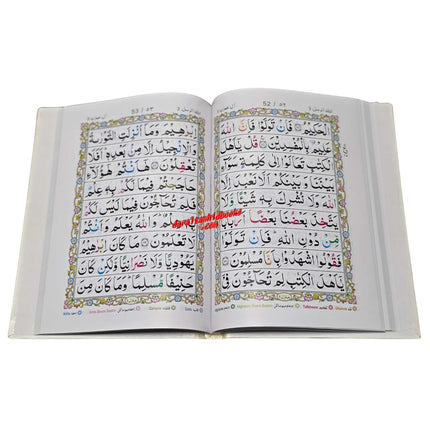 52 / ٥٢
الْحَكِيْمُ ۝ فَاِنْ تَوَلَّوْا فَاِنَّ اللّٰهَ
عَلِيْمٌۢ بِالْمُفْسِدِيْنَ ۝ قُلْ يٰۤاَهْلَ
الْكِتٰبِ تَعَالَوْا اِلٰى كَلِمَةٍ سَوَآءٍۢ
بَيْنَنَا وَبَيْنَكُمْ اَلَّا نَعْبُدَ اِلَّا
اللّٰهَ وَلَا نُشْرِكَ بِهٖ شَيْـًٔا وَّلَا
يَتَّخِذَ بَعْضُنَا بَعْضًا اَرْبَابًا
مِّنْ دُوْنِ اللّٰهِ ؕ فَاِنْ تَوَلَّوْا
فَقُوْلُوا اشْهَدُوْا بِاَنَّا مُسْلِمُوْنَ ۝
يٰۤاَهْلَ الْكِتٰبِ لِمَ تُحَآجُّوْنَ فِيْۤ
53 / ٥٣
اِبْرٰهِيْمَ وَمَاۤ اُنْزِلَتِ التَّوْرٰىةُ
وَالْاِنْجِيْلُ اِلَّا مِنْۢ بَعْدِهٖ ؕ اَفَلَا
تَعْقِلُوْنَ ۝ هٰۤاَنْتُمْ هٰۤؤُلَآءِ
حَاجَجْتُمْ فِيْمَا لَكُمْ بِهٖ عِلْمٌ
فَلِمَ تُحَآجُّوْنَ فِيْمَا لَيْسَ لَكُمْ
بِهٖ عِلْمٌ ؕ وَاللّٰهُ يَعْلَمُ وَاَنْتُمْ
لَا تَعْلَمُوْنَ ۝ مَا كَانَ اِبْرٰهِيْمُ
يَهُوْدِيًّا وَّلَا نَصْرَانِيًّا وَّلٰكِنْ كَانَ
حَنِيْفًا مُّسْلِمًا ؕ وَمَا كَانَ مِنَ